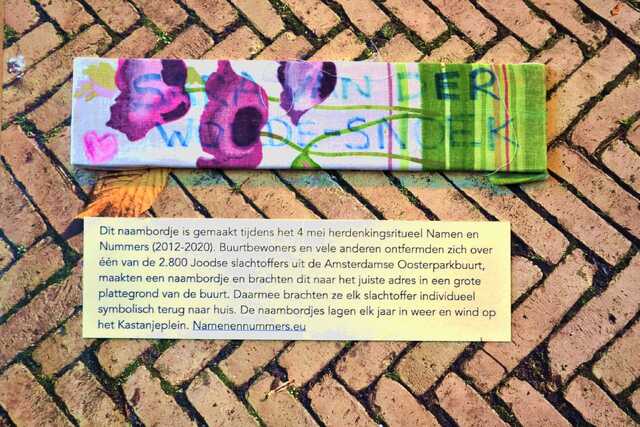 SARA VAN DER
WOUDE-SNOEK
Dit naambordje is gemaakt tijdens het 4 mei herdenkingsritueel Namen en
Nummers (2012-2020). Buurtbewoners en vele anderen ontfermden zich over
één van de 2.800 Joodse slachtoffers uit de Amsterdamse Oosterparkbuurt,
maakten een naambordje en brachten dit naar het juiste adres in een grote
plattegrond van de buurt. Daarmee brachten ze elk slachtoffer individueel
symbolisch terug naar huis. De naambordjes lagen elk jaar in weer en wind op
het Kastanjeplein. Namenennummers.eu